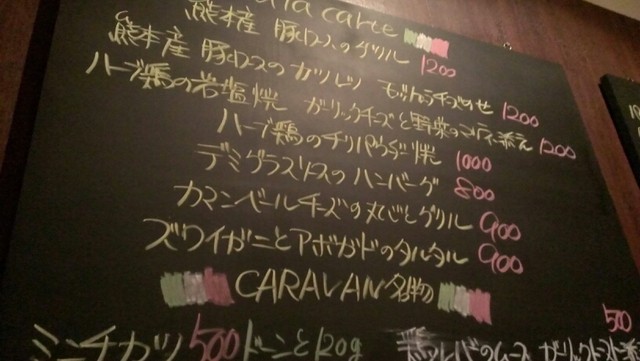 a la carte
熊本産 豚ロースのグリル 1200
熊本産 豚ロースのカツレツ モッツァレラチーズのせ 1200
ハーブ鶏の岩塩焼 ガーリックチーズと野菜の 添え 1200
ハーブ鶏のチリパウダー焼 1000
デミグラスソースのハンバーグ 800
カマンベールチーズの丸ごとグリル 900
ズワイガニとアボガドのタルタル 900
CARAVAN名物
ミニチカツ 500 ドーンと120g
500